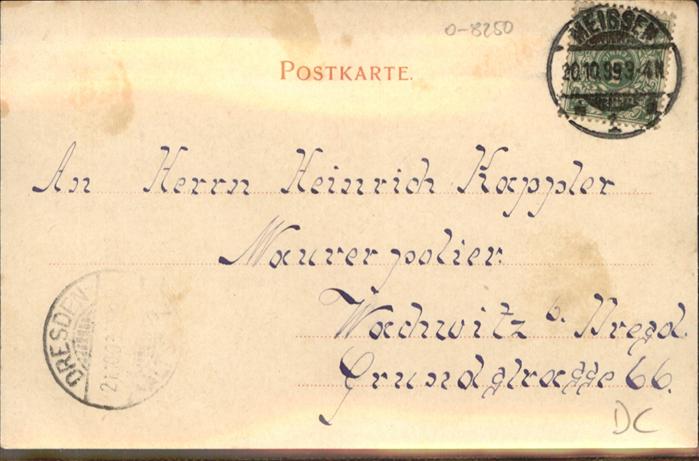 o-8250
POSTKARTE.
MEISSEN
20.10.99.3-4N
1
An Herrn Heinrich Kappler
Maurerpolier
Wachwitz b. Dresd.
Grundstrasse 66.
DRESDEN
DC